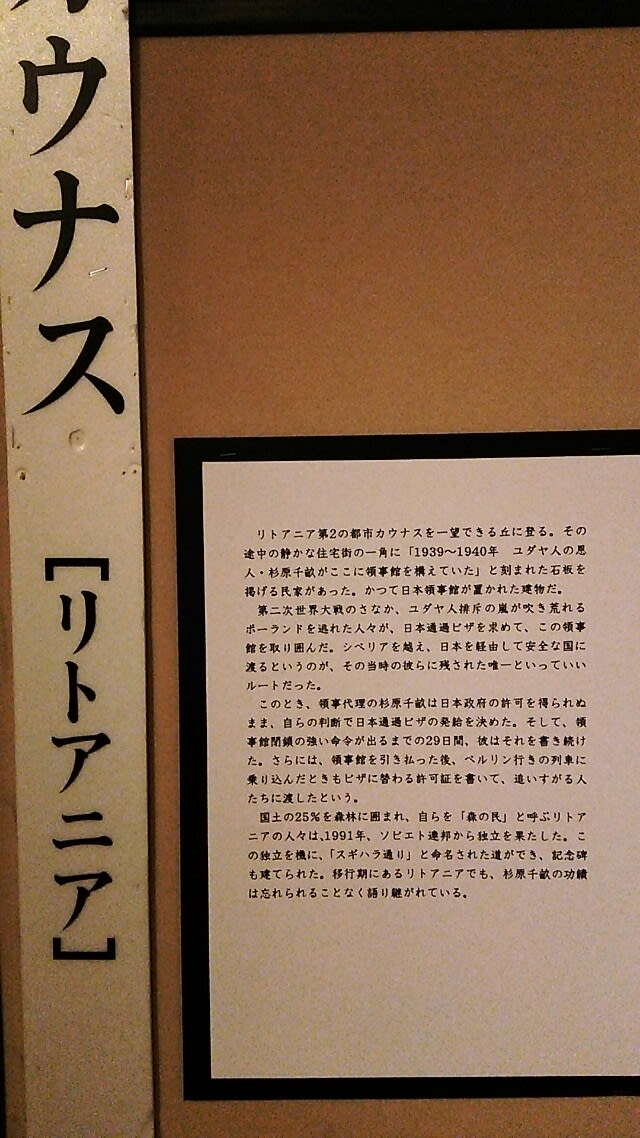 カウナス
［リトアニア］
リトアニア第2の都市カウナスを一望できる丘に登る。その
途中の静かな住宅街の一角に「1939〜1940年　ユダヤ人の恩
人・杉原千畝がここに領事館を構えていた」と刻まれた石板を
掲げる民家があった。かつて日本領事館が置かれた建物だ。
第二次世界大戦のさなか、ユダヤ人排斥の嵐が吹き荒れる
ポーランドを逃れた人々が、日本通過ビザを求めて、この領事
館を取り囲んだ。シベリアを越え、日本を経由して安全な国に
渡るというのが、その当時の彼らに残された唯一といっていい
ルートだった。
このとき、領事代理の杉原千畝は日本政府の許可を得られぬ
まま、自らの判断で日本通過ビザの発給を決めた。そして、領
事館閉鎖の強い命令が出るまでの29日間、彼はそれを書き続け
た。さらには、領事館を引き払った後、ベルリン行きの列車に
乗り込んだときもビザに替わる許可証を書いて、追いすがる人
たちに渡したという。
国土の25％を森林に囲まれ、自らを「森の民」と呼ぶリトア
ニアの人々は、1991年、ソビエト連邦から独立を果たした。こ
の独立を機に、「スギハラ通り」と命名された道ができ、記念碑
も建てられた。移行期にあるリトアニアでも、杉原千畝の功績
は忘れられることなく語り継がれている。